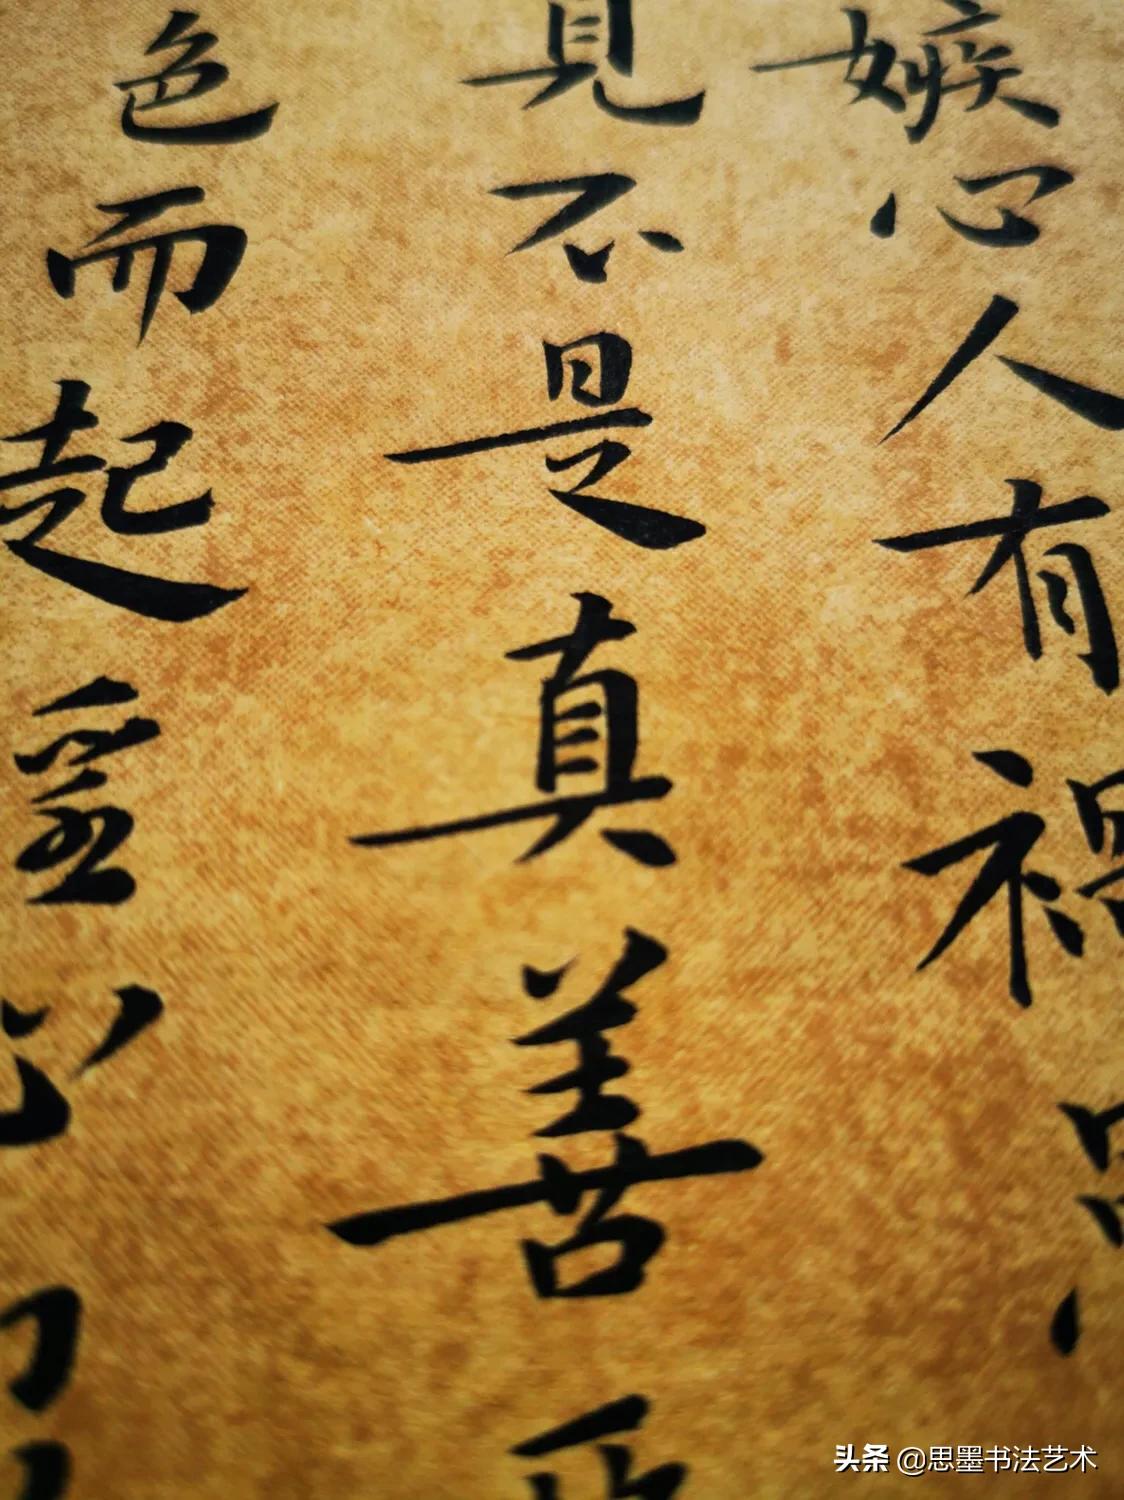 嫉心人有禍
見不是真善
色而起淫心
头条 @思墨书法艺术